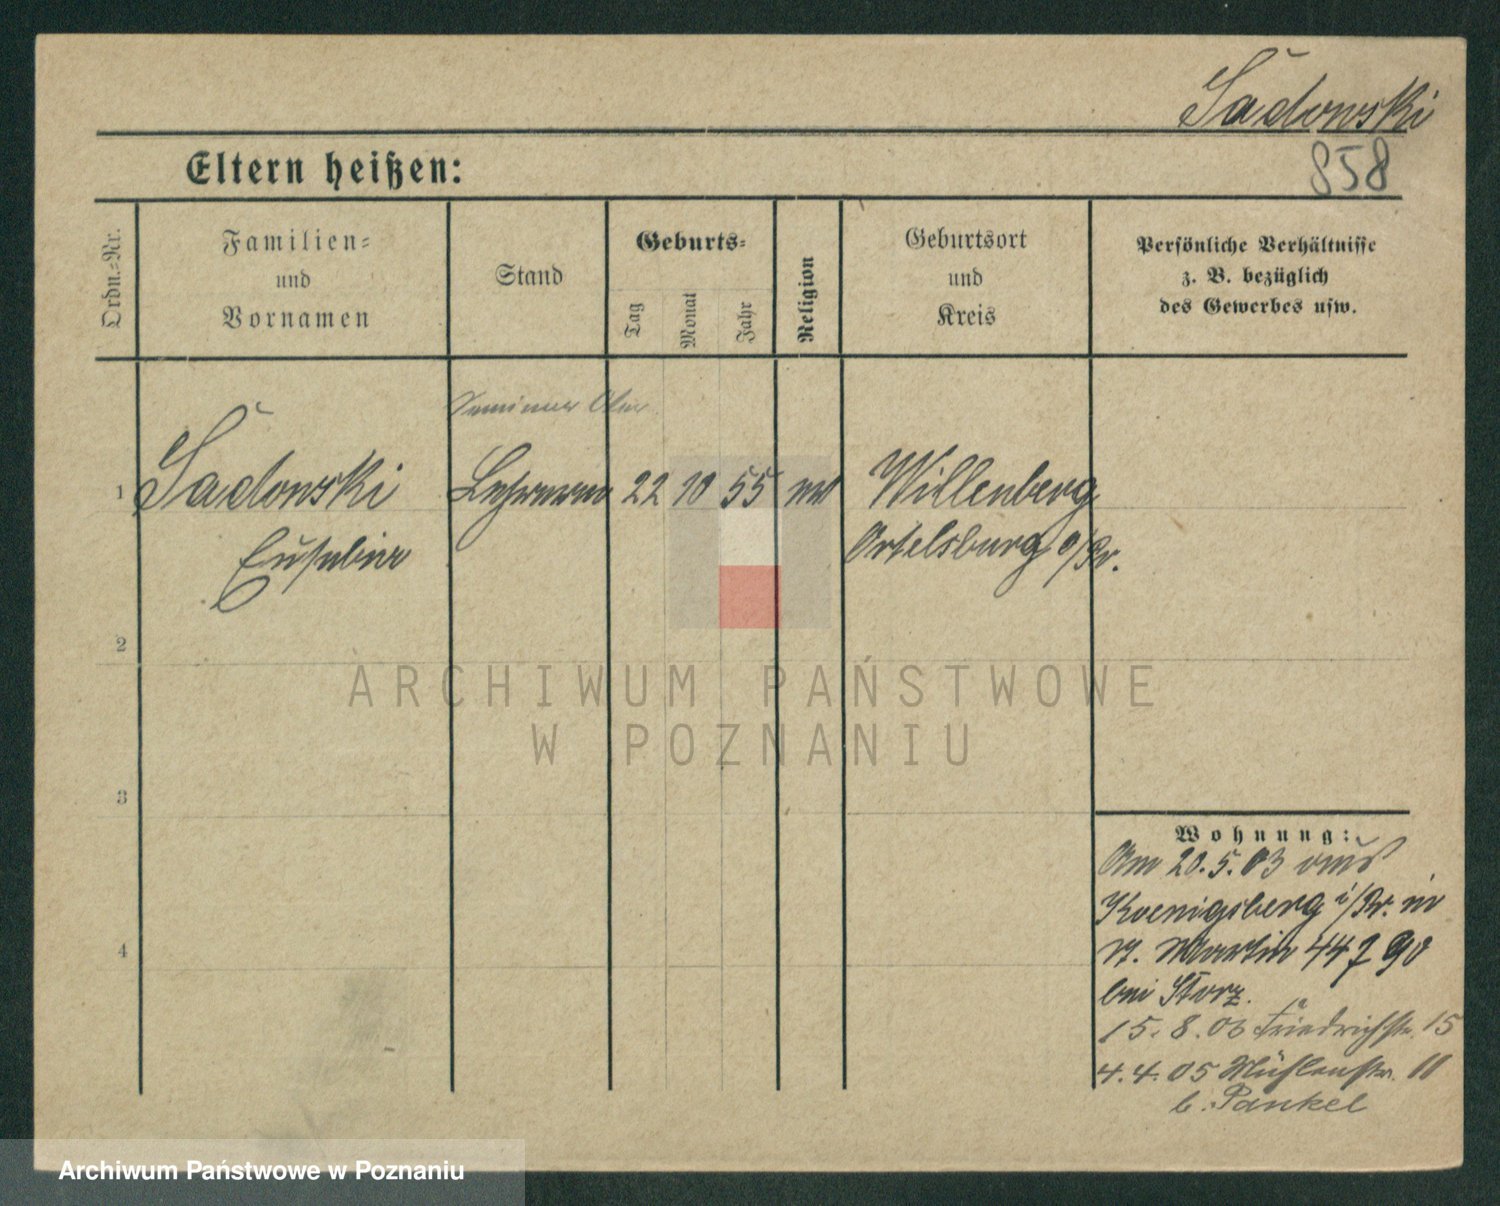 Sadowski
858
Eltern heißen:
Ordn.-Nr.
Familien-
und
Vornamen
Stand
Geburts-
Tag
Monat
Jahr
Religion
Geburtsort
und
Kreis
Persönliche Verhältnisse
z. B. bezüglich
des Gewerbes usw.
Seminar
1 Sadowski Lehrerin 22 10 55 Willenberg
Ortelsburg o/Pr.
2
3
4
Wohnung:
Am 20.5.03 aus
Koenigsberg i/Pr. in
St. Martin 447
bei Storz.
15. 8. Friedrichstr. 15
4. 4. 05 Mühlenstr. 11
b. Pankel
ARCHIWUM PAŃSTWOWE
W POZNANIU
Archiwum Państwowe w Poznaniu